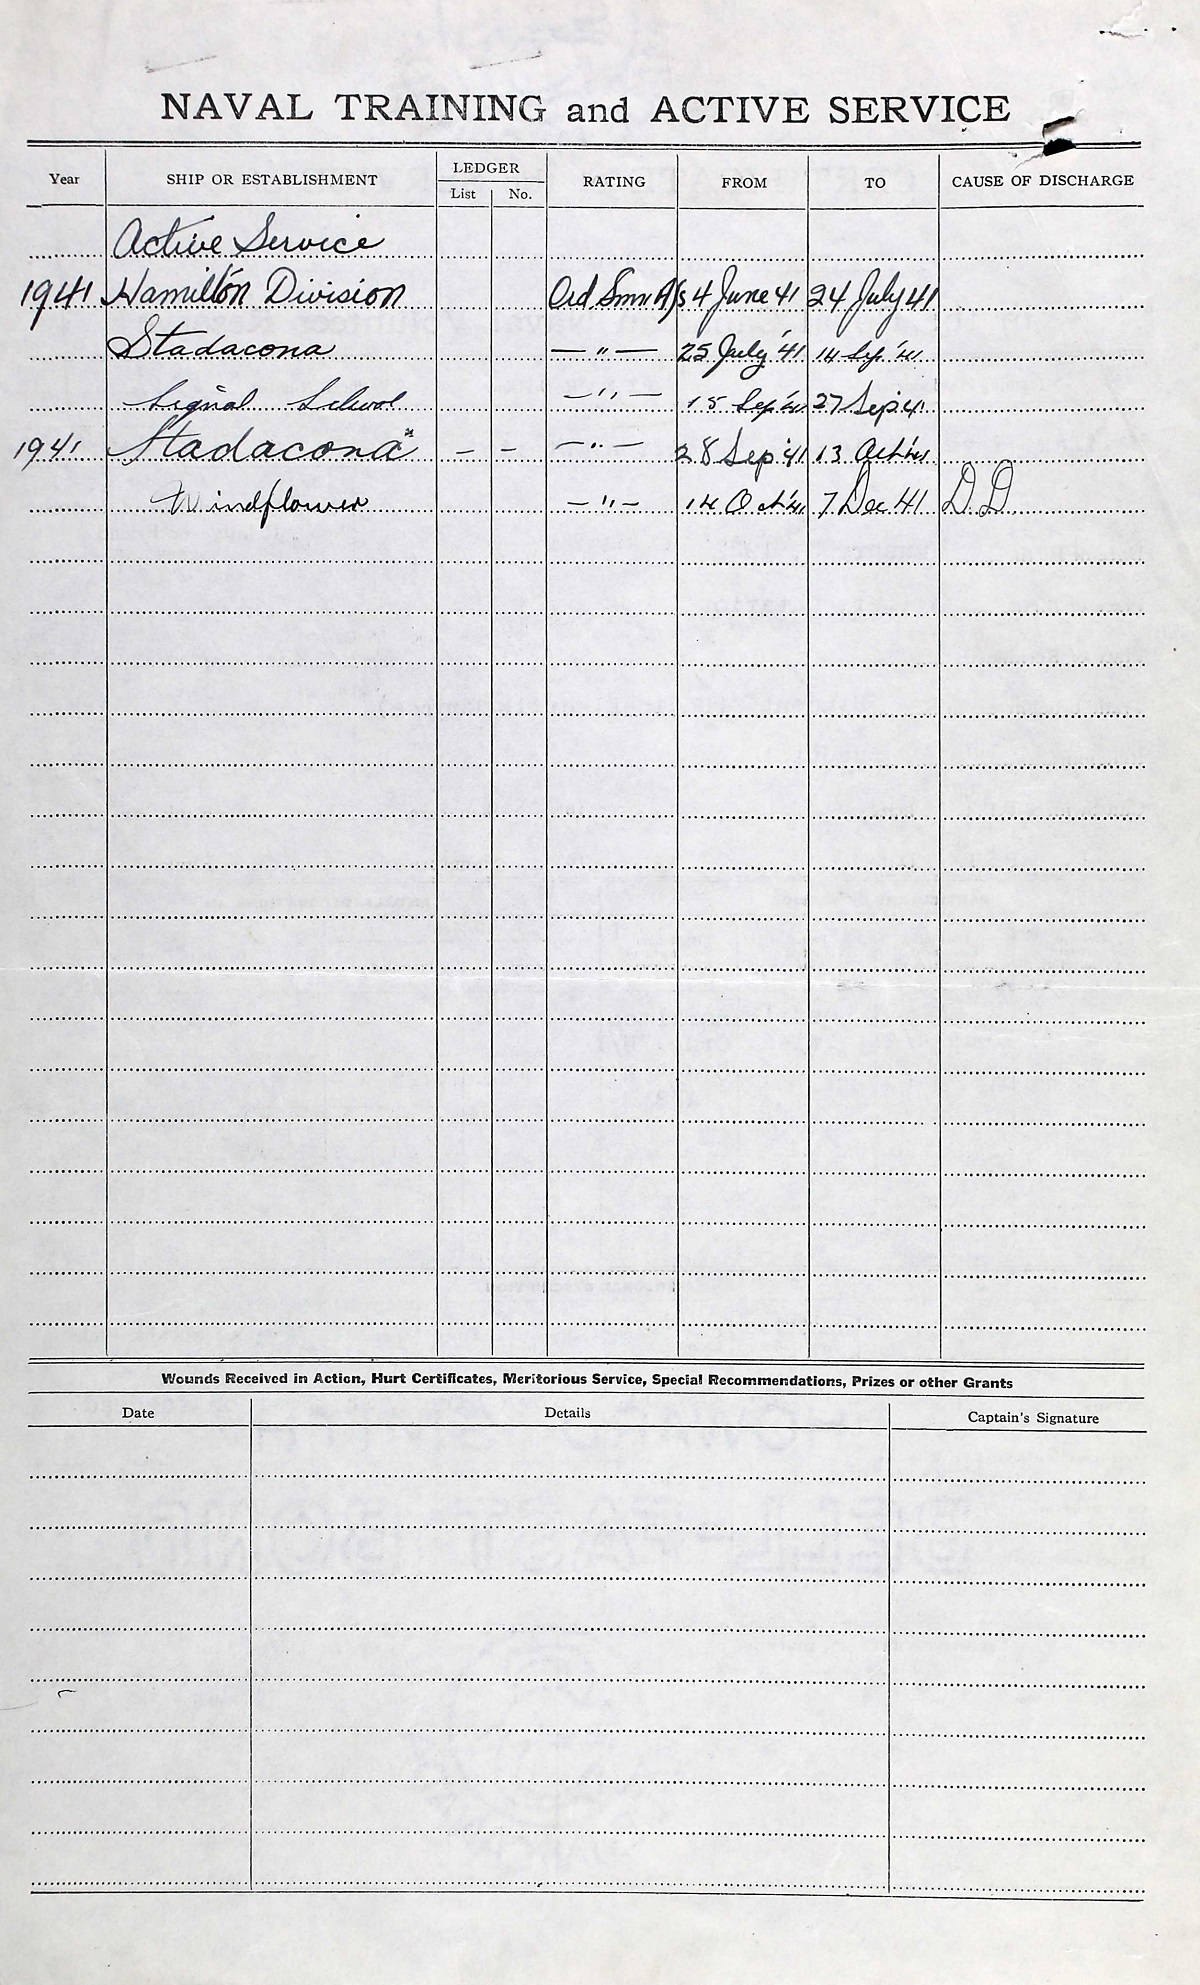 NAVAL TRAINING and ACTIVE SERVICE
Year SHIP OR ESTABLISHMENT LEDGER List No. RATING FROM TO CAUSE OF DISCHARGE
Active Service
1941 Hamilton Division Ord Smn A/S 4 June 41 24 July 41
Stadacona — " — 25 July '41 14 Sep '41
Signal School — " — 15 Sep '41 27 Sep 41
1941 Stadacona" – – — " — 28 Sep '41 13 Oct '41
Windflower — " — 14 Oct '41 7 Dec 41 D.D.
Wounds Received in Action, Hurt Certificates, Meritorious Service, Special Recommendations, Prizes or other Grants
Date Details Captain's Signature